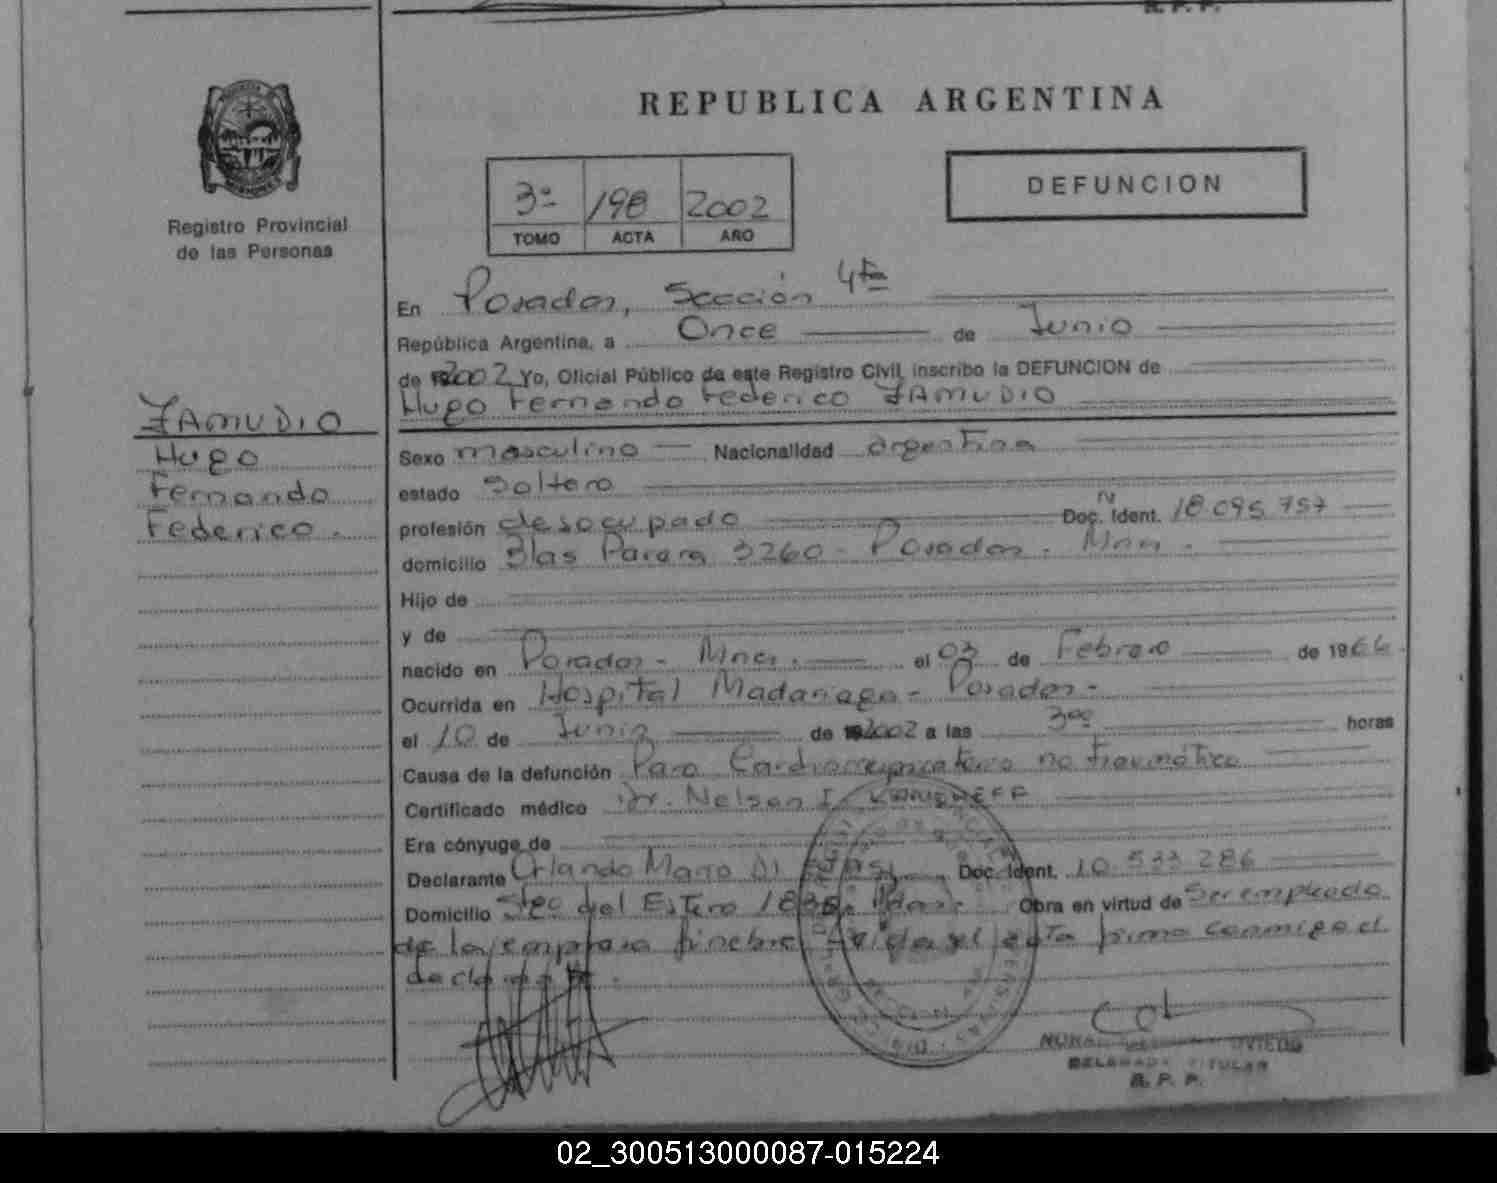 R. P. P.
REPUBLICA ARGENTINA
DEFUNCION
3ª 198 2002
TOMO ACTA AÑO
Registro Provincial
de las Personas
En Posadas, Sección 4ta
República Argentina, a Once de Junio
de 2002 Yo, Oficial Público de este Registro Civil, inscribo la DEFUNCION de
Hugo Fernando Federico ZAMUDIO
ZAMUDIO
Hugo
Fernando
Federico.
Sexo masculino Nacionalidad argentina
estado Soltero
profesión desocupado Doc. Ident. N 18.095.757
domicilio Blas Parera 3260 - Posadas. Mnes.
Hijo de
y de
nacido en Posadas - Mnes. el 03 de Febrero de 1966
Ocurrida en Hospital Madariaga - Posadas -
el 10 de Junio de 2002 a las 3:00 horas
Causa de la defunción Paro Cardiorrespiratorio no traumático
Certificado médico Dr. Nelson I.
Era cónyuge de
Declarante Orlando Mario Di Doc. Ident. 10.533.286
Domicilio Sgo del Estero Obra en virtud de Ser empleado
de la empresa fúnebre acta firma conmigo el
declarante.
NORA OVIEDO
DELEGADA TITULAR
R. P. P.
02_300513000087-015224